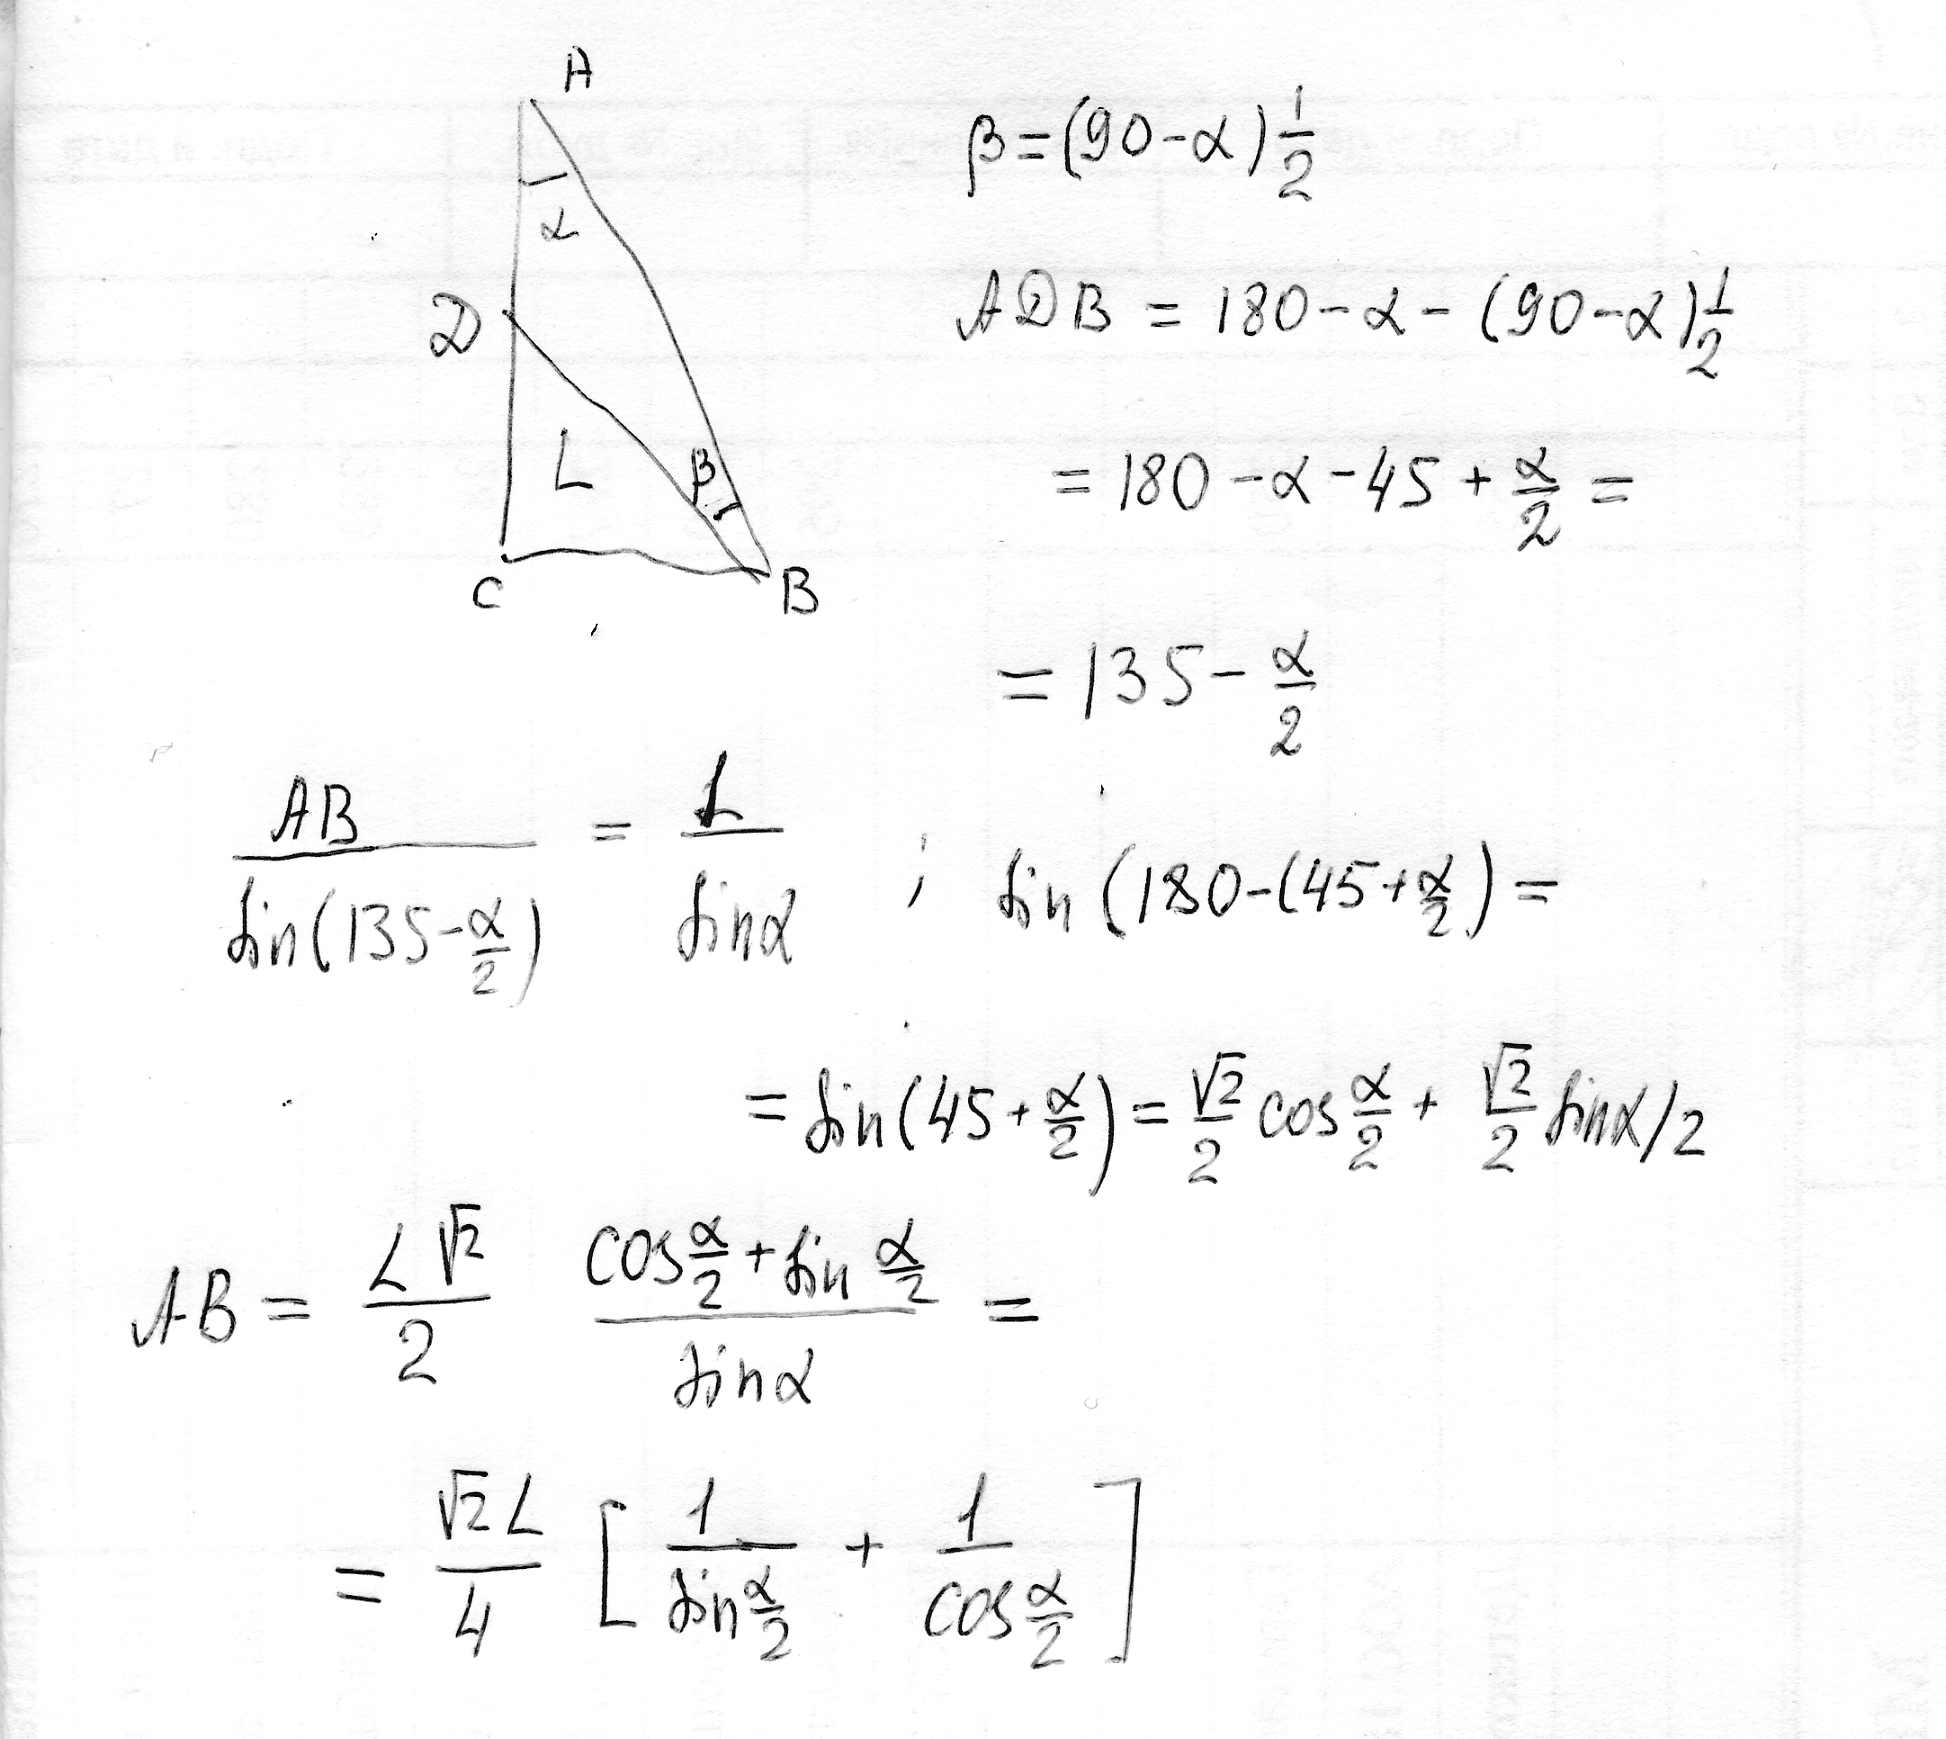 A
α
D
L
β
C
B
β=(90-α)1/2
ADB = 180-α-(90-α)1/2
= 180-α-45+α/2 =
= 135-α/2
AB/sin(135-α/2) = L/sinα ; sin(180-(45+α/2)=
= sin(45+α/2)= √2/2 cos α/2 + √2/2 sinα/2
AB = L√2/2 (cos α/2 + sin α/2)/sinα =
= √2L/4 [1/sin α/2 + 1/cos α/2]